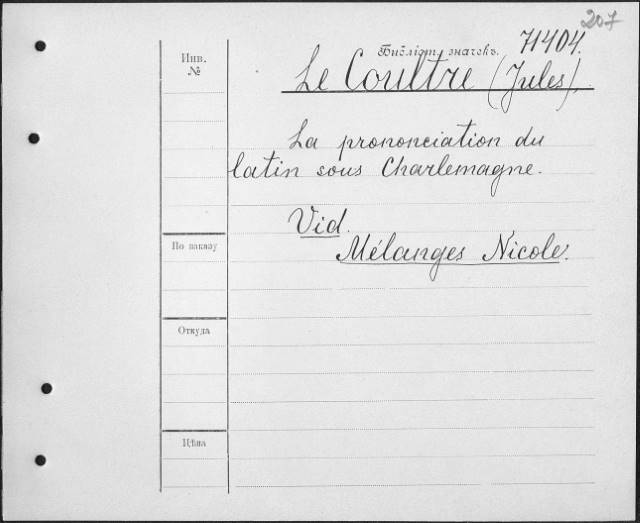 207
Библіот. значекъ. 71404.
Инв.
№
Le Coultre (Jules).
La prononciation du
latin sous Charlemagne.
Vid.
По заказу
Mélanges Nicole.
Откуда
Цѣна